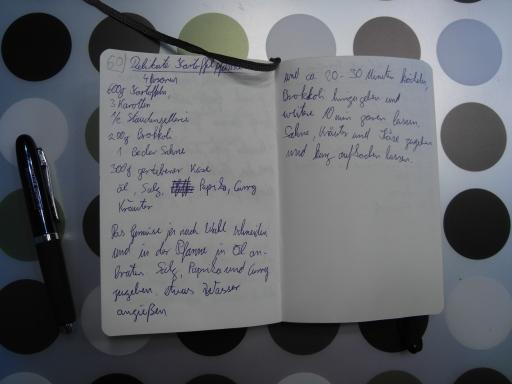 60) Delikate Kartoffelpfanne
4 Personen
600g Kartoffeln,
3 Karotten
1/2 Staudensellerie
200g Brokkoli
1 Becher Sahne
300g geriebener Käse
Öl, Salz, Paprika, Curry
Kräuter
Das Gemüse je nach Wahl schneiden
und in der Pfanne in Öl an-
braten. Salz, Paprika und Curry
zugeben. Etwas Wasser
angießen
und ca. 20-30 Minuten köcheln,
Brokkoli hinzugeben und
weitere 10 min garen lassen.
Sahne, Kräuter und Käse zugeben
und kurz aufkochen lassen.